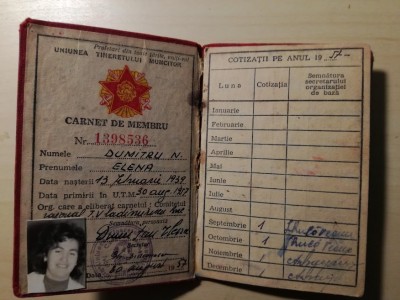 Proletari din toate țările, uniți-vă!
UNIUNEA TINERETULUI MUNCITOR
CARNET DE MEMBRU
Nr. 1398536
Numele DUMITRU N.
Prenumele ELENA
Data nașterii 13 februarie 1939
Data primirii în U.T.M. 30 aug. 1957
Org. care a eliberat carnetul: Comitetul
raional T. Vladimirescu
Data 30 august 1957
COTIZAȚII PE ANUL 1957
Luna
Cotizația
Semnătura secretarului organizației de bază
Ianuarie
Februarie
Martie
Aprilie
Mai
Iunie
Iulie
August
Septembrie 1
Octombrie 1
Noembrie 1
Decembrie 1